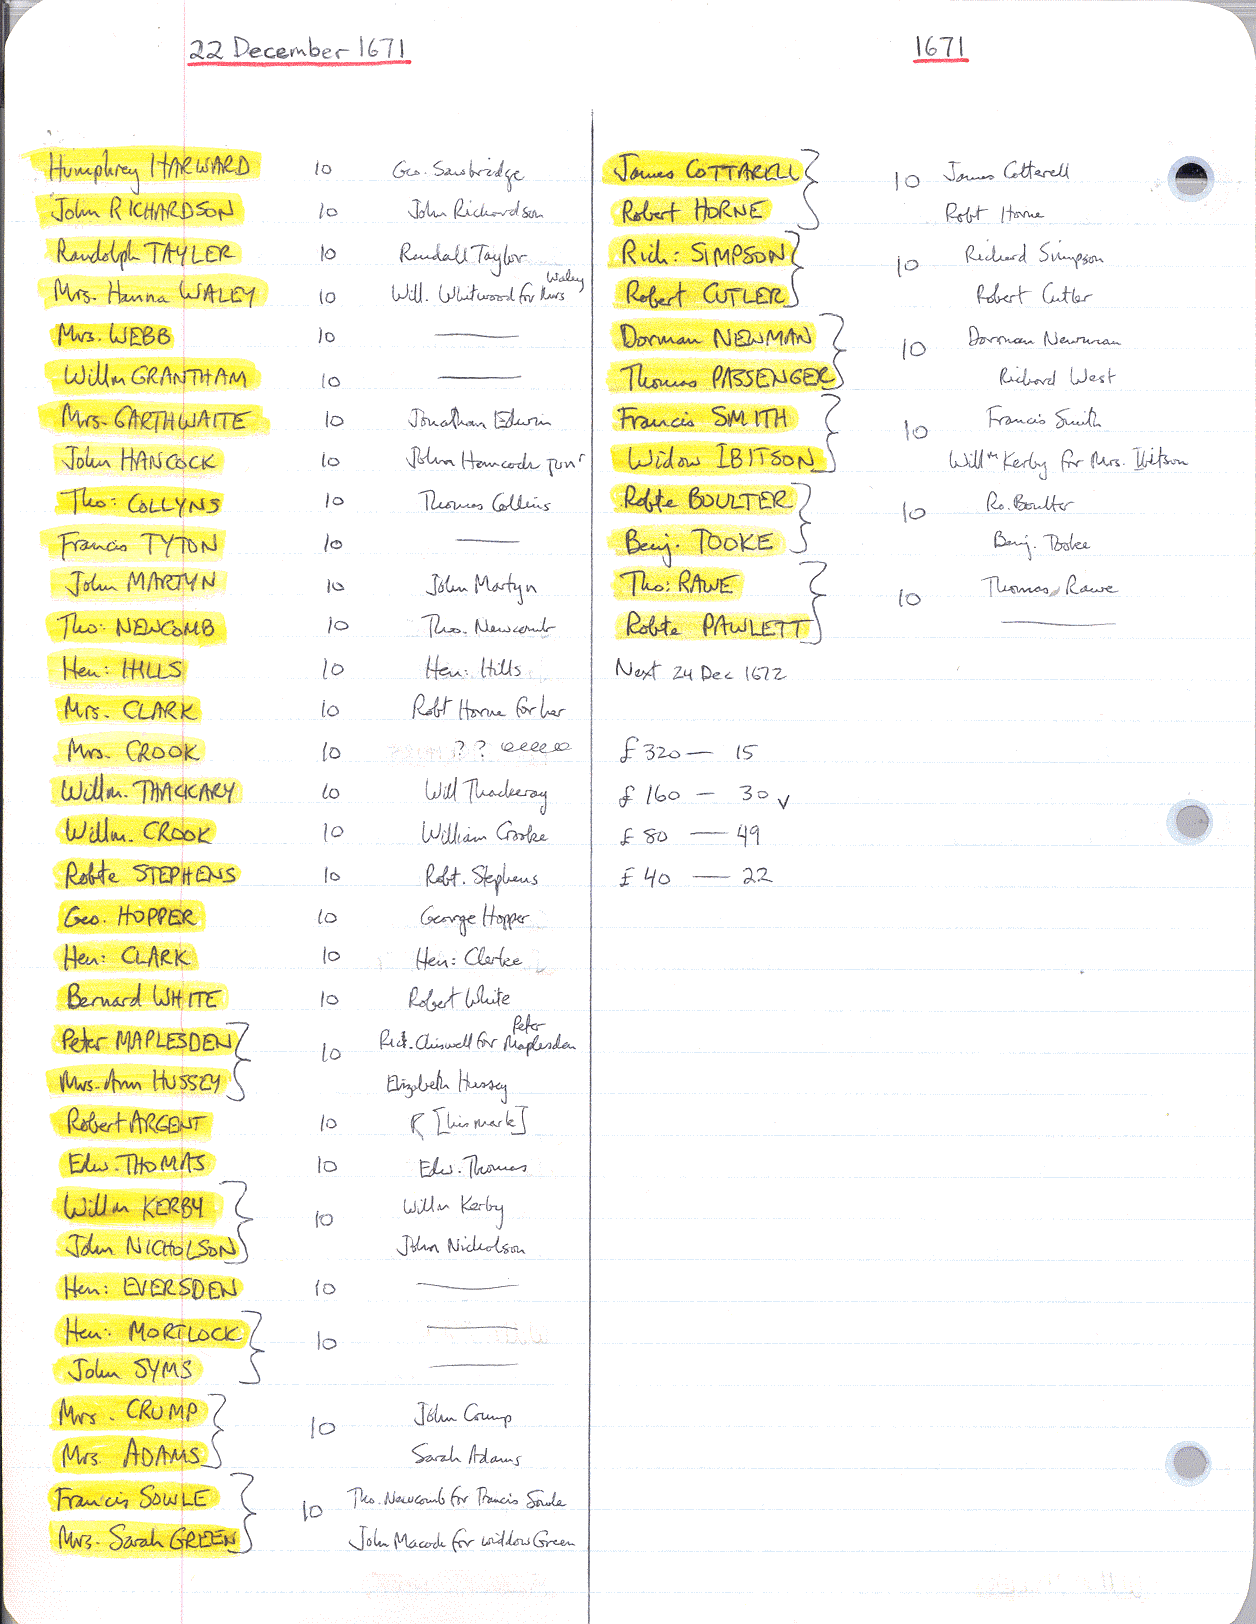 22 December 1671
Humphrey HARWARD 10 Geo. Sawbridge
John RICHARDSON 10 John Richardson
Randolph TAYLER 10 Randall Taylor
Mrs. Hanna WALEY 10 Will. Whitwood for Mrs Waley
Mrs. WEBB 10 ——
Willm GRANTHAM 10 ——
Mrs. GARTHWAITE 10 Jonathan Edwin
John HANCOCK 10 John Hancock junr
Tho: COLLYNS 10 Thomas Collins
Francis TYTON 10 ——
John MARTYN 10 John Martyn
Tho: NEWCOMB 10 Tho. Newcomb
Hen: HILLS 10 Hen: Hills
Mrs. CLARK 10 Robt Horne for her
Mrs. CROOK 10 ? ?
Willm. THACKARY 10 Will Thackeray
Willm. CROOK 10 William Crooke
Robte STEPHENS 10 Robt. Stephens
Geo. HOPPER 10 George Hopper
Hen: CLARK 10 Hen: Clerke
Bernard WHITE 10 Robert White
Peter MAPLESDEN } 10 Rich. Chiswell for Peter Maplesden
Mrs. Ann HUSSEY } Elizabeth Hussey
Robert ARGENT 10 R [his mark]
Edw. THOMAS 10 Edw. Thomas
Willm KERBY } 10 Willm Kerby
John NICHOLSON } John Nicholson
Hen: EVERSDEN 10 ——
Hen: MORTLOCK } 10 ——
John SYMS } ——
Mrs. CRUMP } 10 John Crump
Mrs ADAMS } Sarah Adams
Francis SOWLE } 10 Tho. Newcomb for Francis Sowle
Mrs. Sarah GREEN } John Macock for widdow Green
1671
James COTTARELL } 10 James Cotterell
Robert HORNE } Robt Horne
Rich: SIMPSON } 10 Richard Simpson
Robert CUTLER } Robert Cutler
Dorman NEWMAN } 10 Dorman Newman
Thomas PASSENGER } Richard West
Francis SMITH } 10 Francis Smith
Widow IBITSON } Willm Kerby for Mrs. Ibitson
Robte BOULTER } 10 Ro. Boulter
Benj. TOOKE } Benj. Tooke
Tho: RAWE } 10 Thomas Rawe
Robte PAWLETT } ——
Next 24 Dec 1672
£ 320 — 15
£ 160 — 30 v
£ 80 — 49
£ 40 — 22